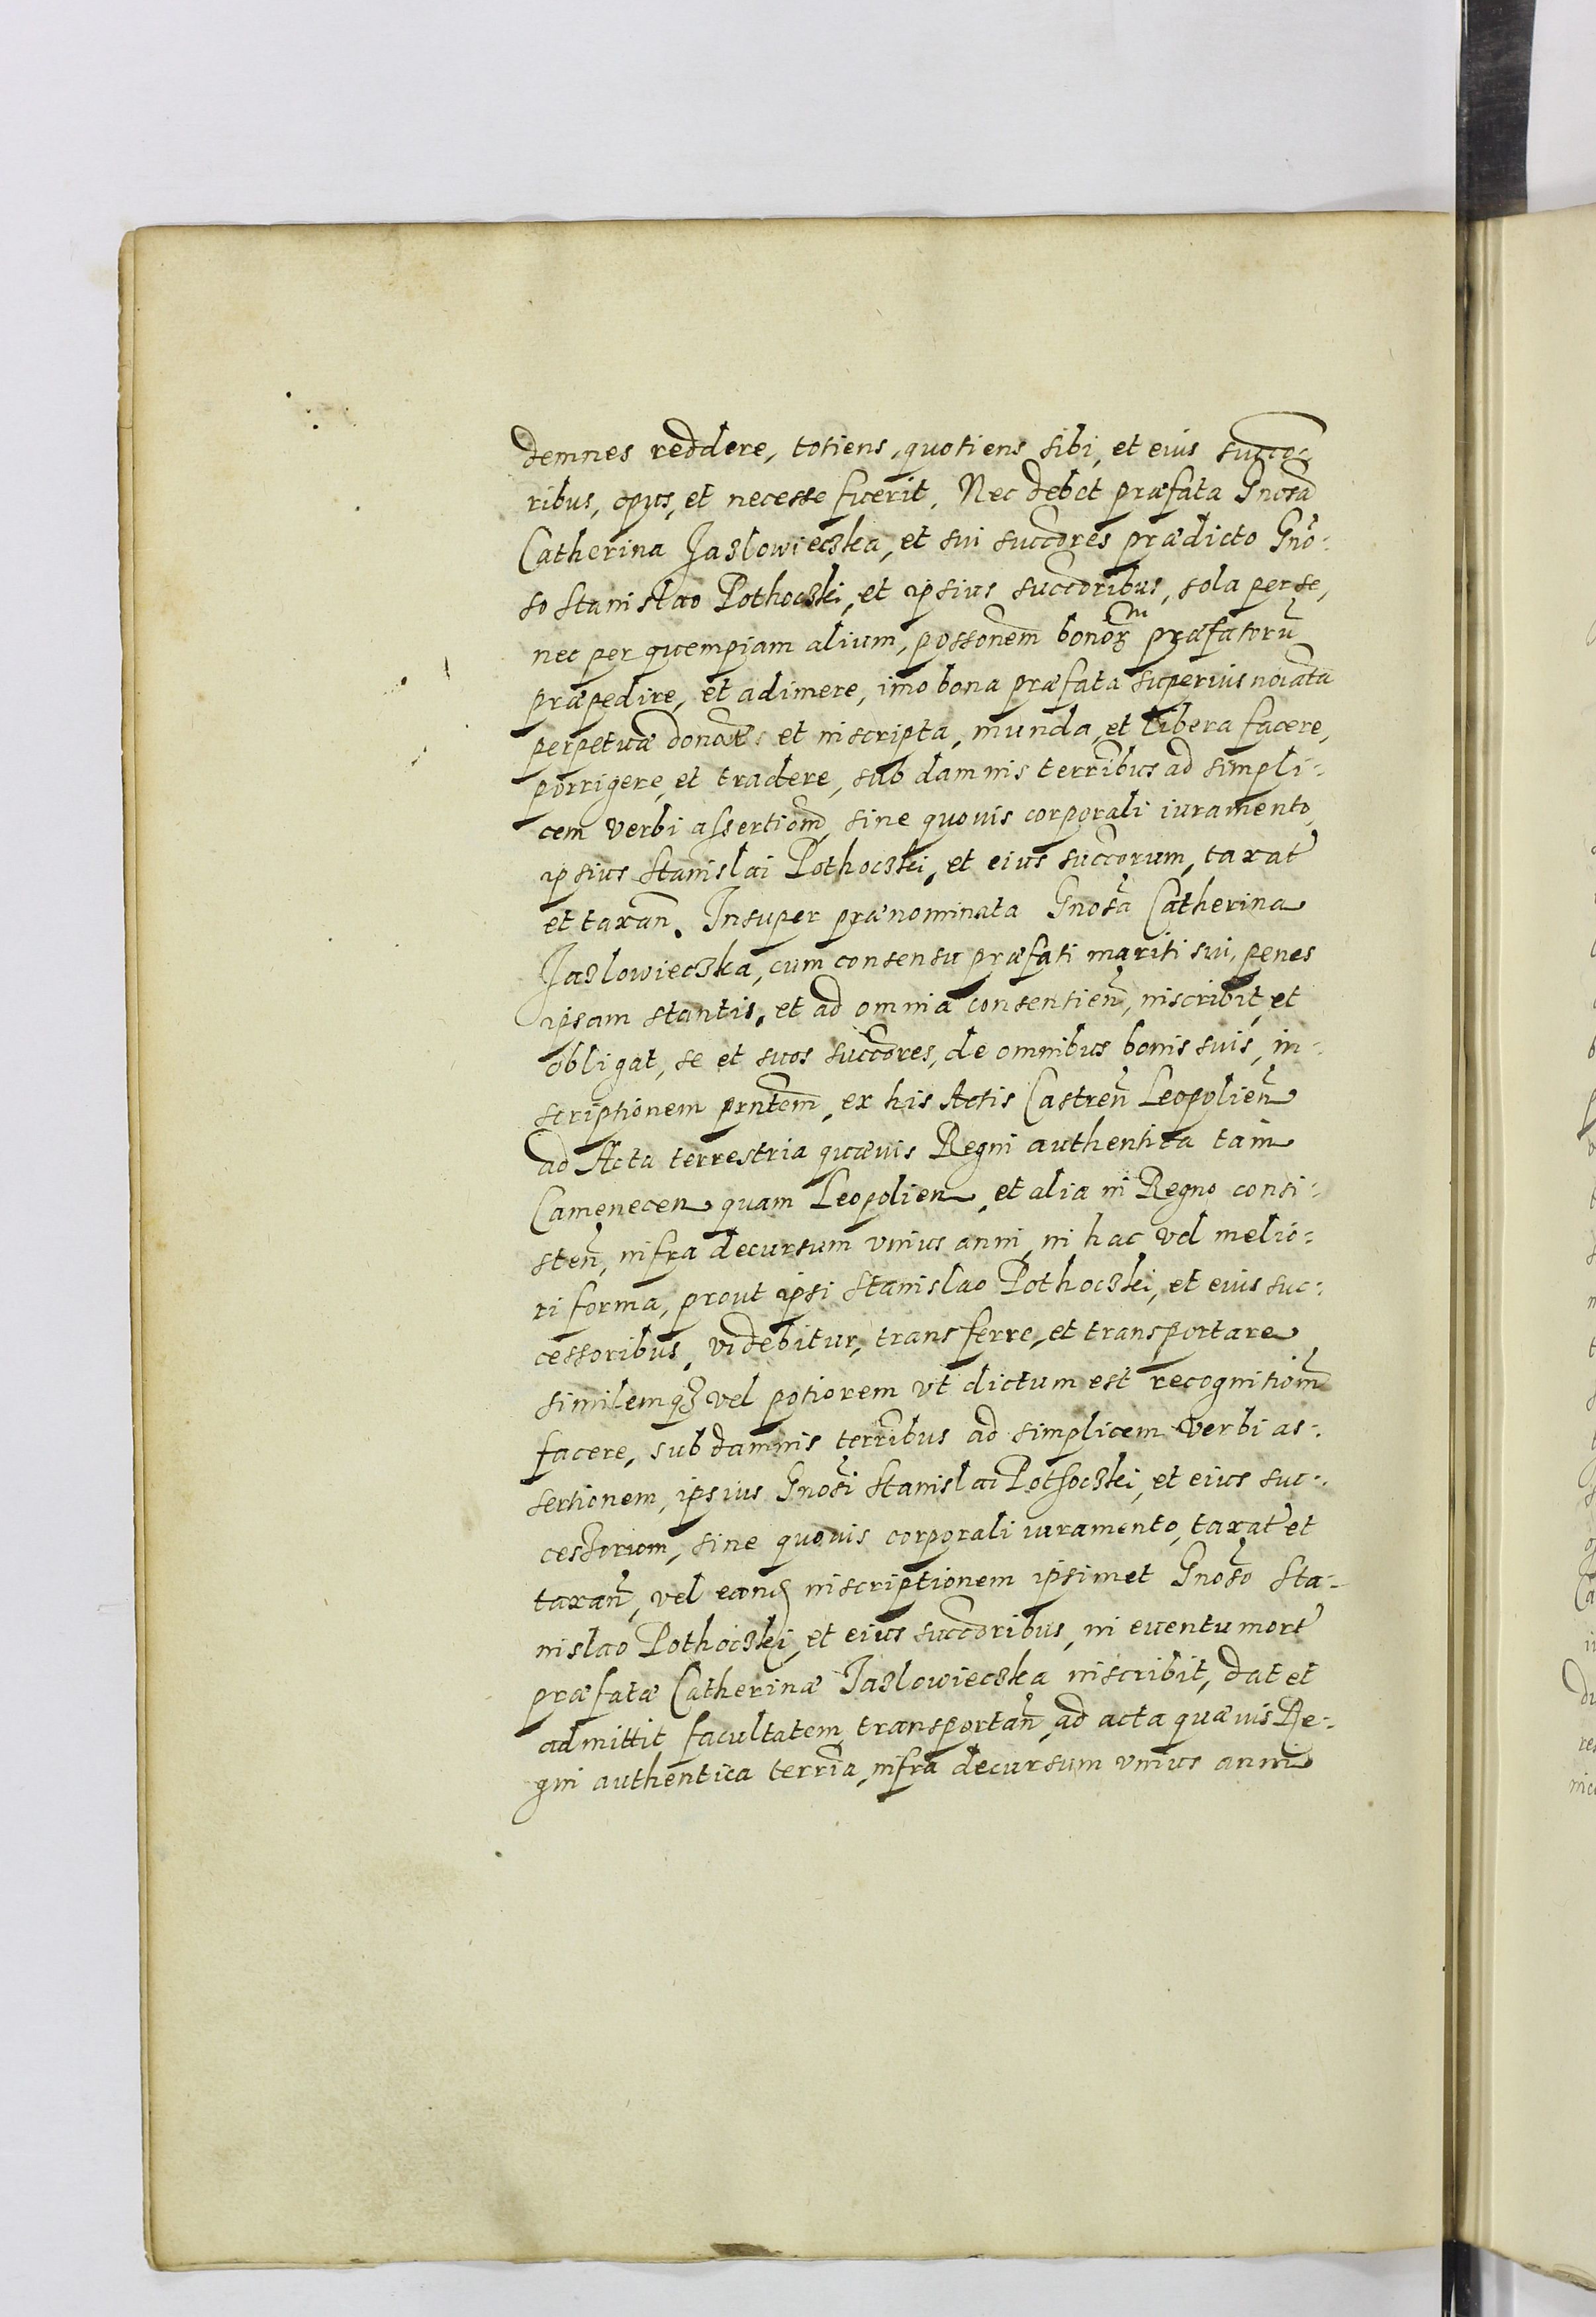 demnes reddere, totiens, quotiens sibi, et eius succo-
ribus, opus, et necesse fuerit. Nec debet præfata Gnosã
Catherina Jazlowieczka, et sui succõres prædicto Gnõ-
so Stanislao Pothoczki, et ipsius succõribus, sola per se,
nec per quempiam alium, possonem̃ bonorꝫ præfatorũ
præpedire, et adimere, imo bona præfata superius noĩata
perpetuæ donat̃ et inscripta, munda, et libera facere,
porrigere, et tradere, sub damnis terrĩbus ad simpli-
cem verbi assertiom̃, sine quouis corporali iuramento,
ipsius Stanislai Pothoczki, et eius succorum, taxat̃
et taxan̄. Insuper prænominata Gnosã Catherina
Jazlowieczka, cum consensu præfati mariti sui, penes
ipsam stantis, et ad omnia consentien̄, inscribit, et
obligat, se et suos succõres, de omnibus bonis suis, in-
scriptionem prñtem, ex his Actis Castren̄ Leopolien̄
ad Acta terrestria quævis Regni authentica tam
Camenecen quam Leopolien, et alia in Regno consi-
sten̄, infra decursum vnius anni, in hac vel melio-
ri forma, prout ipsi Stanislao Pothoczki, et eius suc-
cessoribus, videbitur, transferre, et transportare
similemqꝫ vel potiorem vt dictum est recognitiom̃
facere, sub damnis terrĩbus ad simplicem verbi as-
sertionem, ipsius Gnosĩ Stanislai Pothoczki, et eius suc-
cessorum, sine quouis corporali iuramento, taxat̃ et
taxan̄, vel eand inscriptionem ipsimet Gnosõ Sta-
nislao Pothoczki, et eius succõribus, in euentu mort̃
præfatæ Catherinæ Jazlowieczka inscribit, dat et
admittit facultatem transportan̄ ad acta quævis Re-
gni authentica terrĩa, infra decursum vnius anni